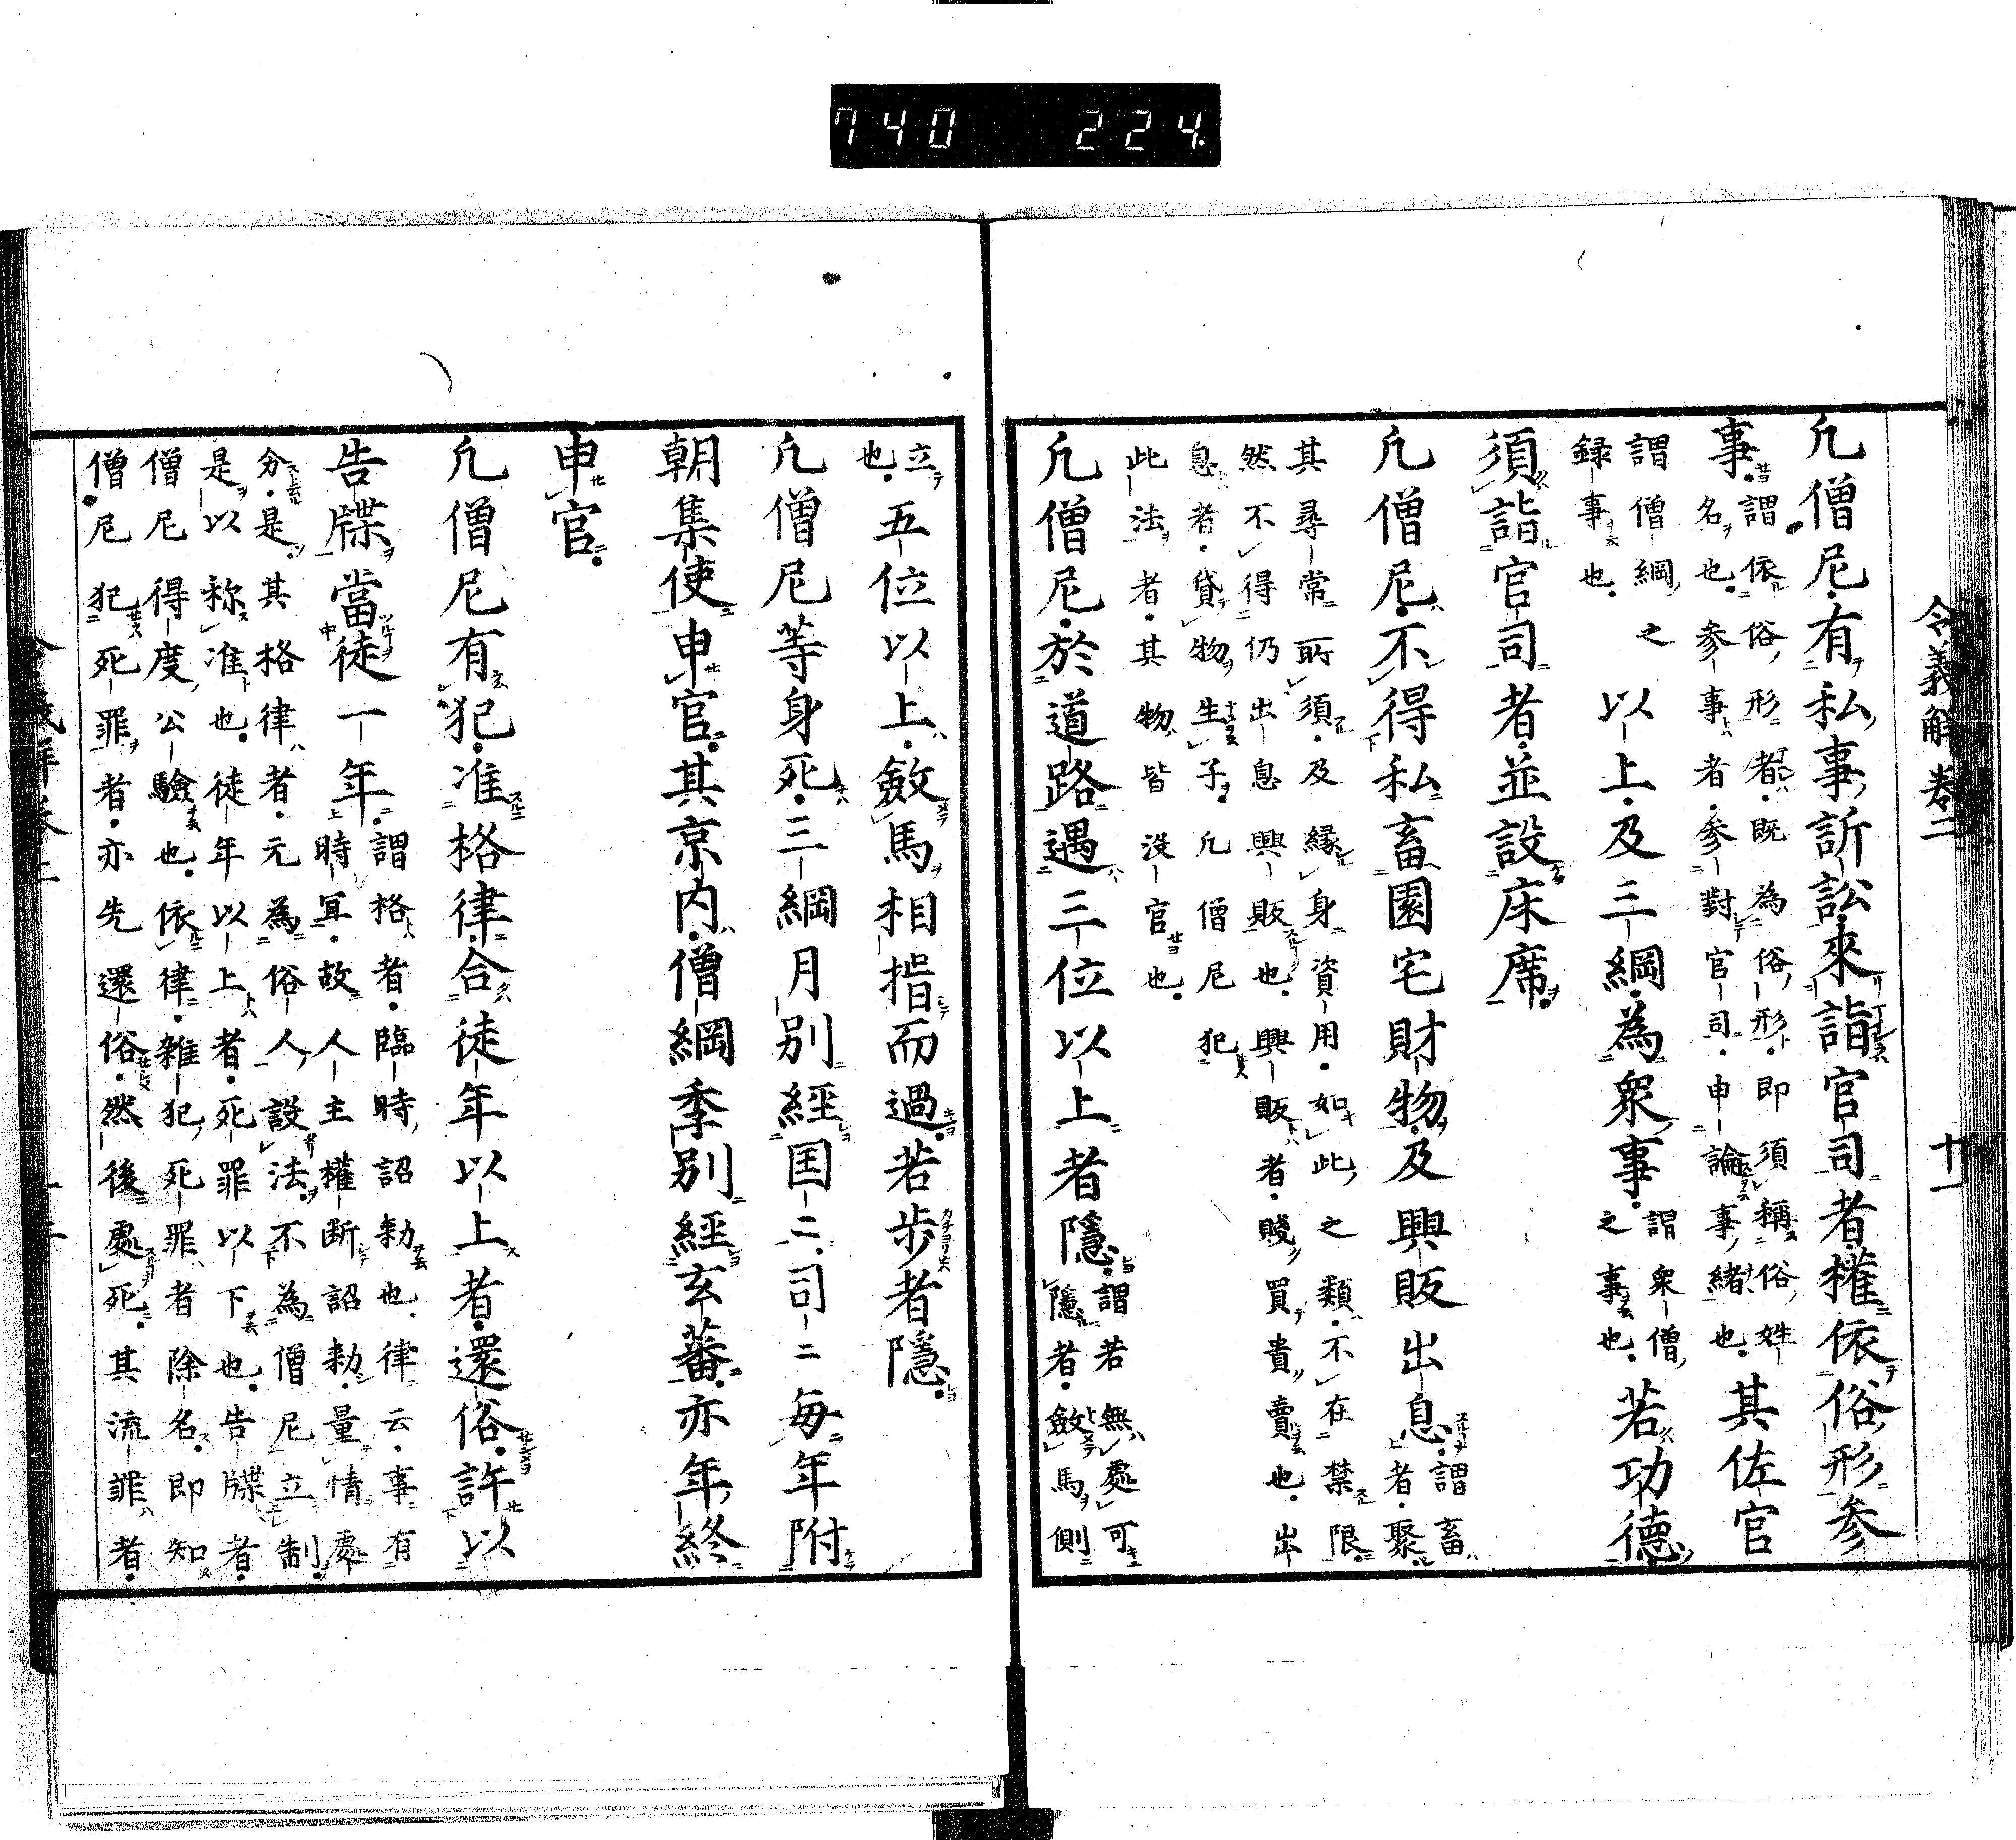 740 224
令義解卷二 十一
凢僧尼有私事訴訟來詣官司者權依俗形参
事謂依俗形者既為俗形即須稱俗姓
名也参事者参對官司申論事緒也其佐官
謂僧綱之
録事也以上及三綱為衆事謂衆僧
之事也若功德
須詣官司者並設床席
凢僧尼不得私畜園宅財物及興販出息謂畜
者聚
其尋常所須及緣身資用如此之類不在禁限
然不得仍出息興販也興販者賤買貴賣也出
息者貸物生子凢僧尼犯
此法者其物皆没官也
凢僧尼於道路遇三位以上者隱謂若無處可
隱者斂馬側
立
也五位以上斂馬相揖而過若步者隱
凢僧尼等身死三綱月別經国二司二每年附
朝集使申官其京内僧綱季別經玄蕃亦年終
申官
凢僧尼有犯准格律合徒年以上者還俗許以
告牒當徒一年謂格者臨時詔勅也律云事有
時冝故人主權断詔勅量情處
分是其格律者元為俗人設法不為僧尼立制
是以称准也徒年以上者死罪以下也告牒者
僧尼得度公驗也依律雜犯死罪者除名即知
僧尼犯死罪者亦先還俗然後處死其流罪者